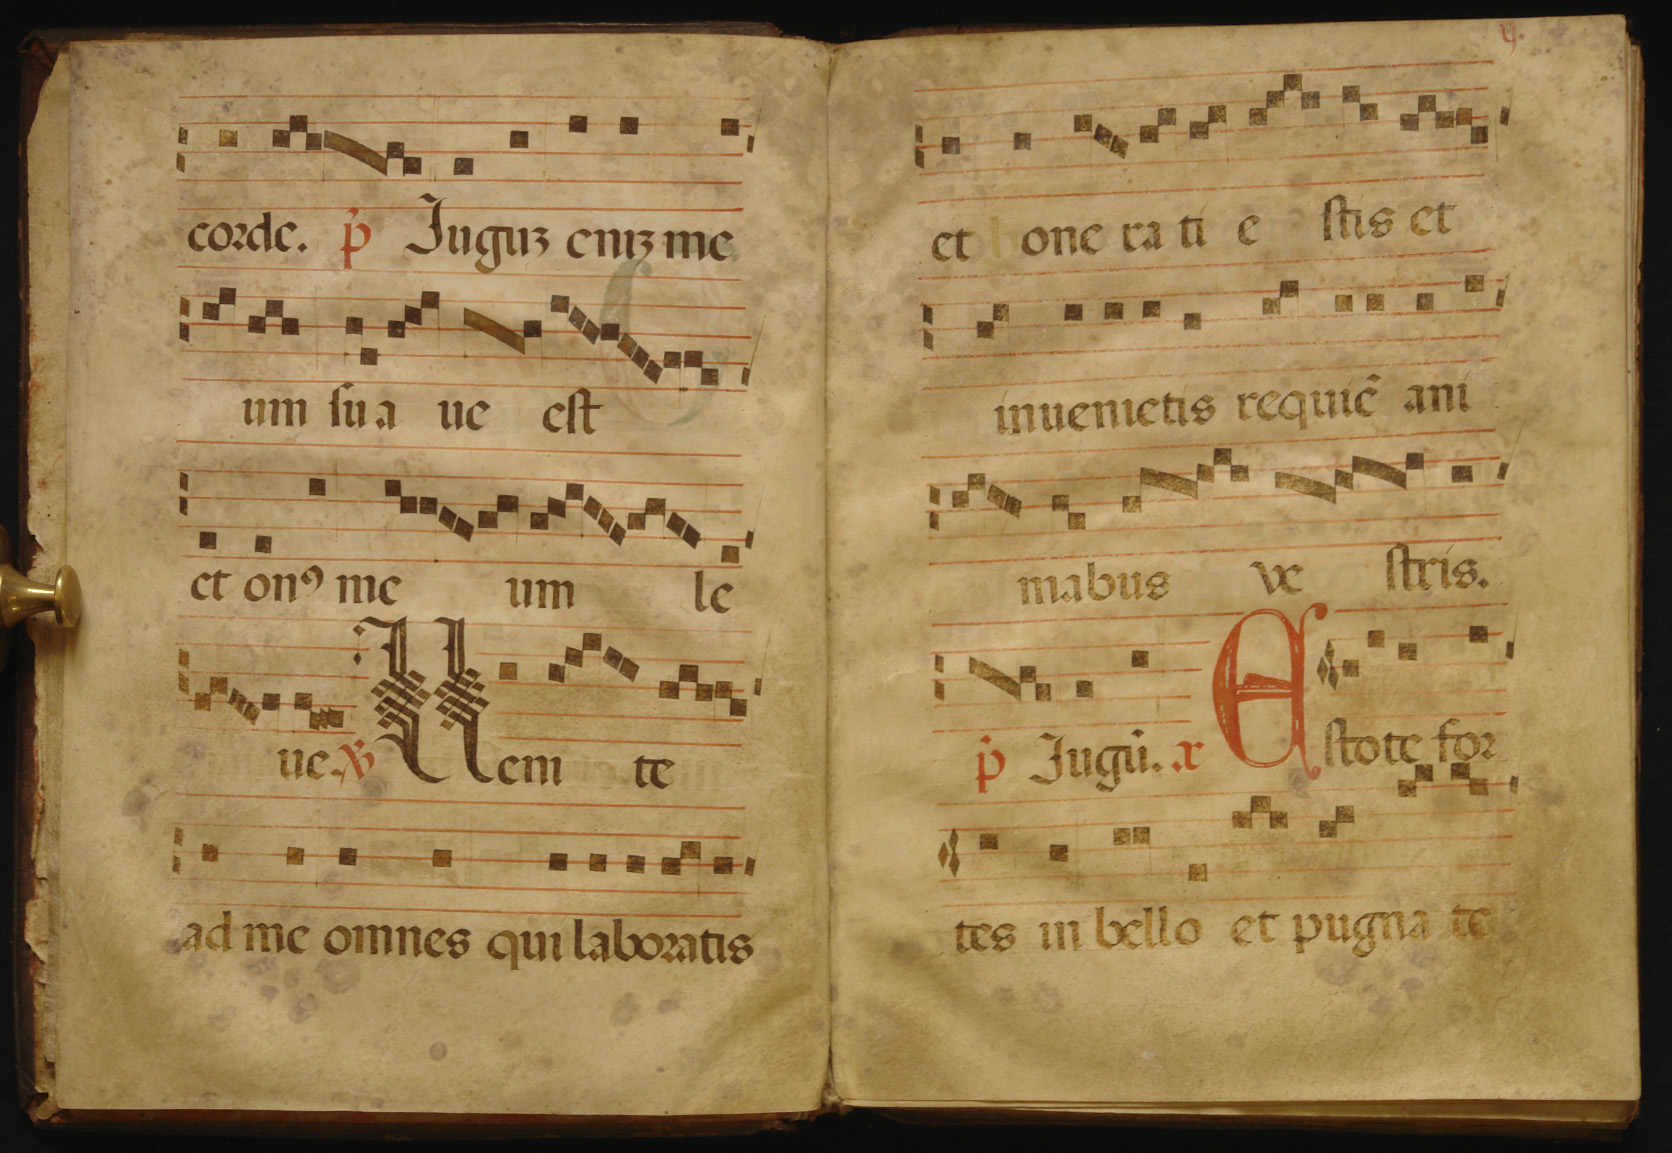 corde. p̃ Juguʒ eniʒ me
um ſu a ue eſt
et onꝰ me um le
ue. ℣ Uem te
ad me omnes qui laboratis
et one ra ti e ſtis et
inuenietis requiẽ ani
mabus ve ſtris.
p̃ Jugũ. Eſtote for
tes in bello et pugna te